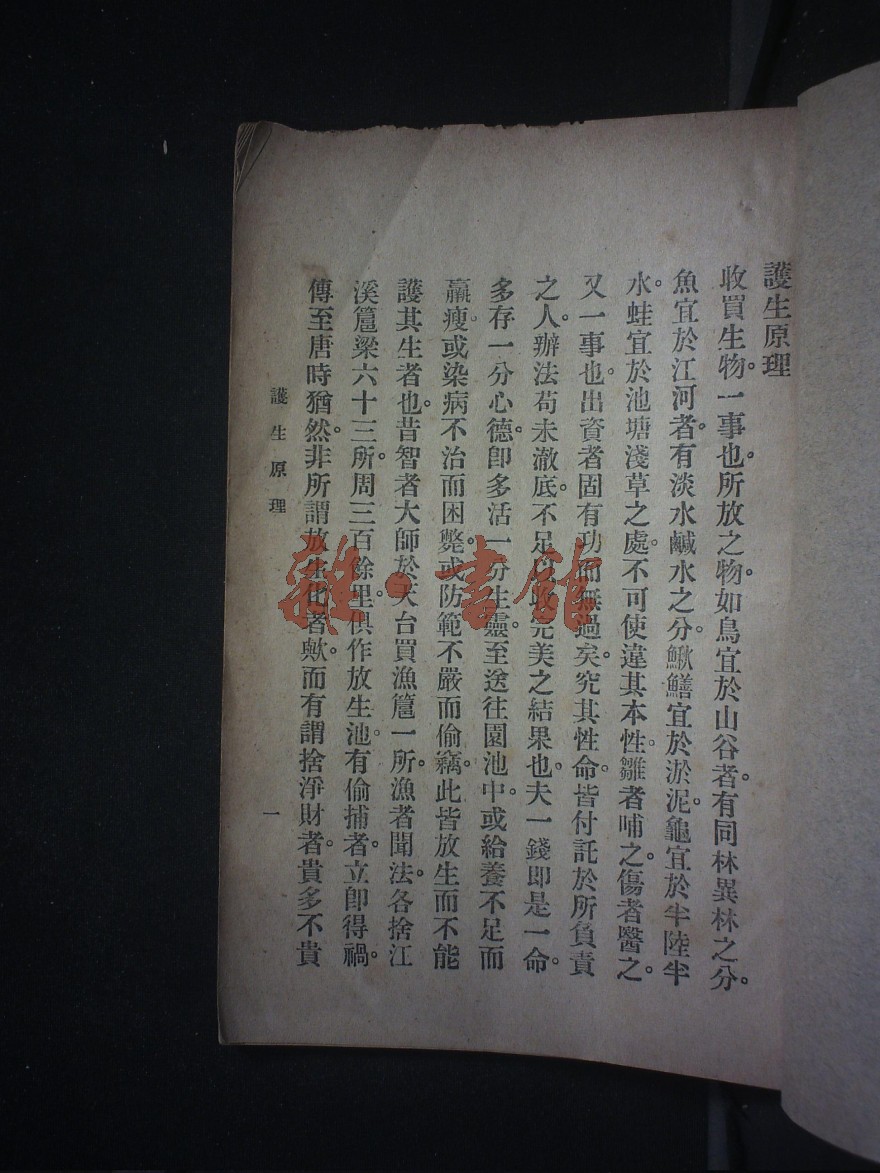 護生原理
收買生物。一事也。所放之物。如鳥宜於山谷者。有同林異林之分。
魚宜於江河者。有淡水鹹水之分。鰍鱔宜於淤泥。龜宜於半陸半
水。蛙宜於池塘淺草之處。不可使違其本性。雛者哺之。傷者醫之。
又一事也。出資者固有功而無過矣。究其性命。皆付託於所負責
之人。辦法苟未澈底。不足以收完美之結果也。夫一錢即是一命。
多存一分心德。即多活一分生靈。至送往園池中。或給養不足而
羸瘦。或染病不治而困斃。或防範不嚴而偷竊。此皆放生而不能
護其生者也。昔智者大師於天台買漁扈一所。漁者聞法。各捨江
溪扈梁六十三所。周三百餘里。俱作放生池。有偷捕者。立即得禍。
傳至唐時猶然。非所謂放生化者歟。而有謂捨淨財者。貴多不貴
護生原理
一
雜·書館